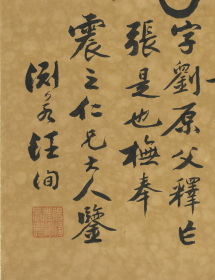 字劉原父釋邑
張是也橅奉
震之仁兄大人鑒
汪洵